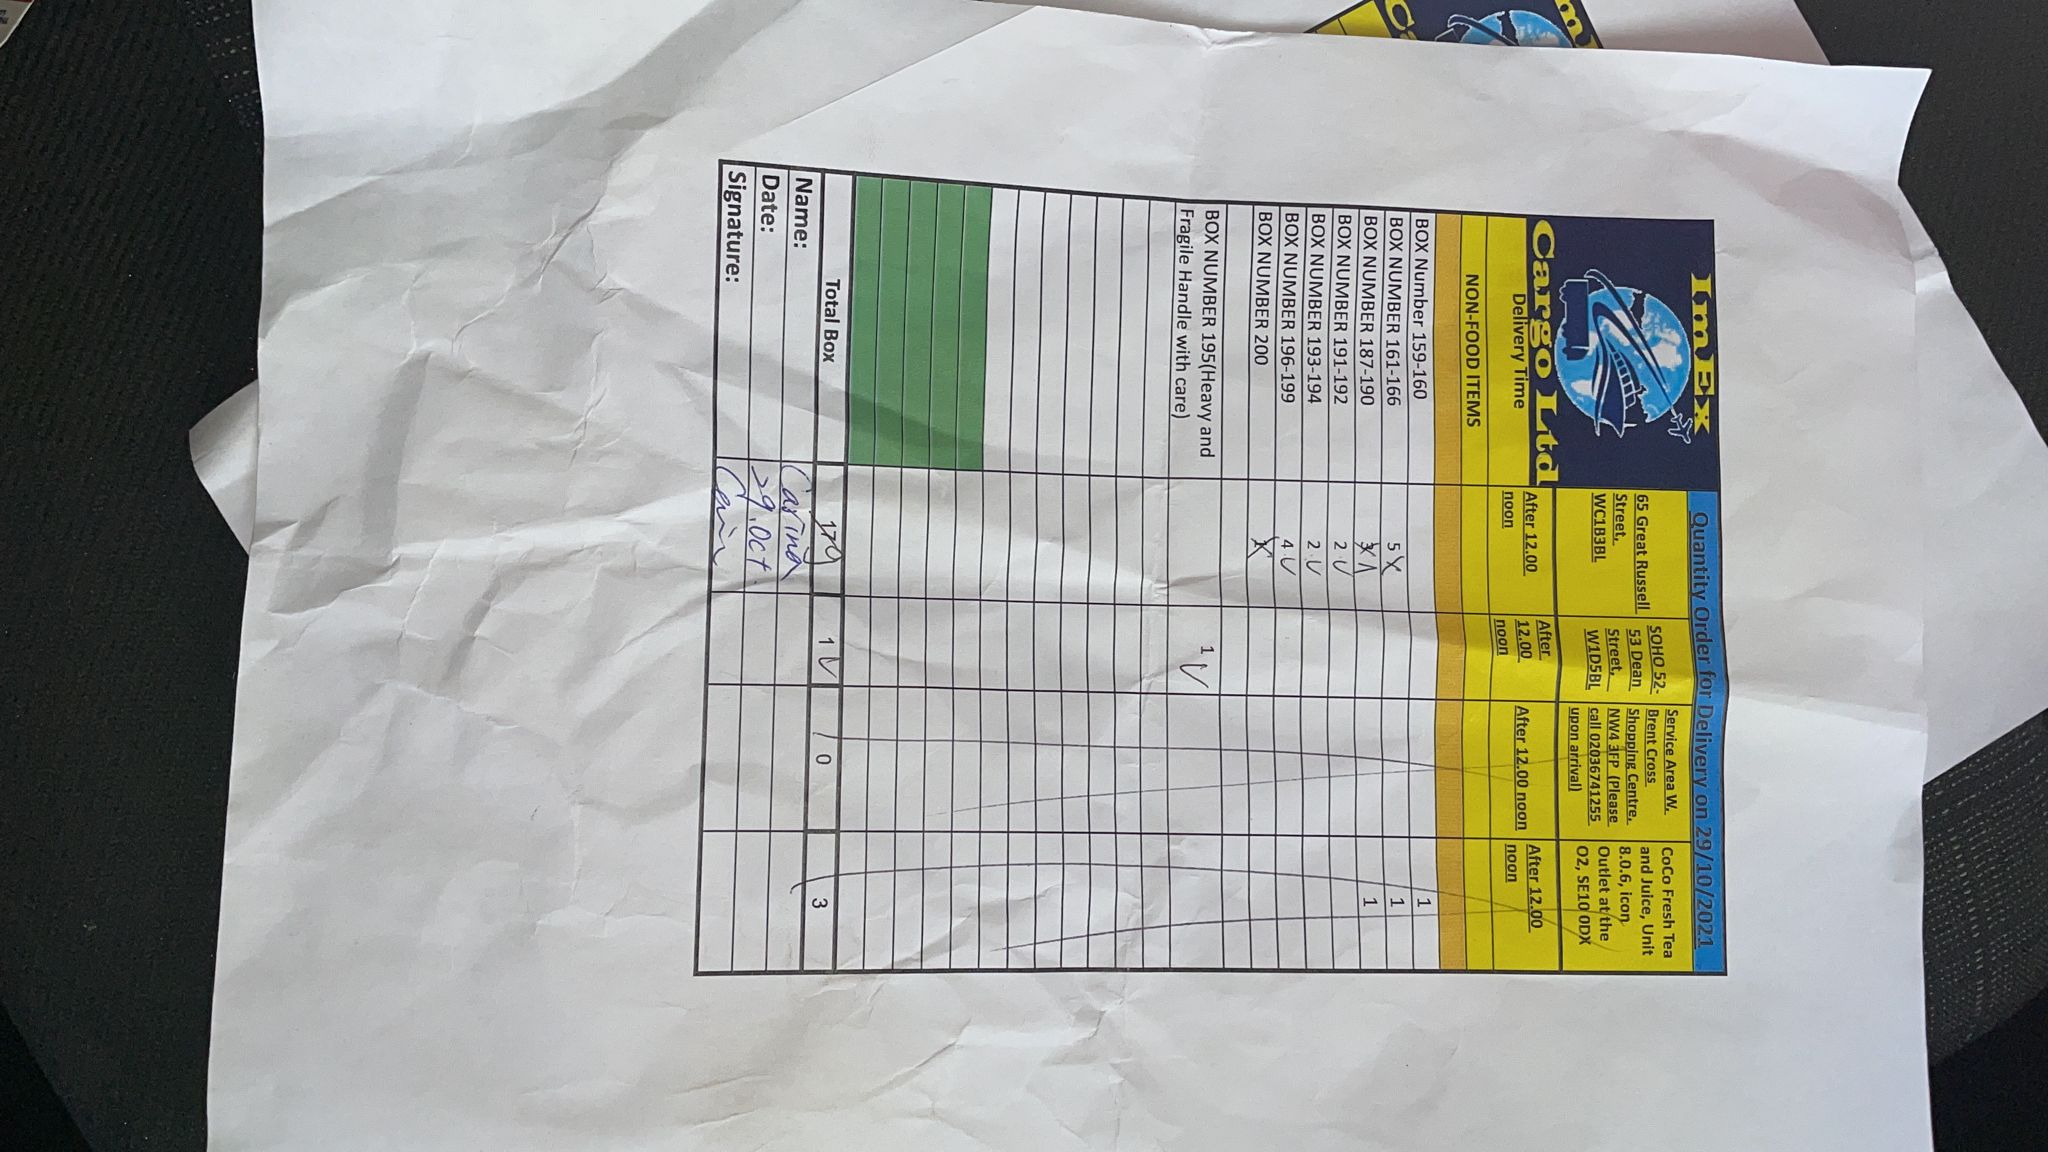 ImEx
Cargo Ltd
Quantity Order for Delivery on 29/10/2021
65 Great Russell Street, WC1B3BL
SOHO 52-53 Dean Street, W1D5BL
Service Area W. Brent Cross Shopping Centre, NW4 3FP (Please call 02036741255 upon arrival)
CoCo Fresh Tea and Juice, Unit 8.0.6, icon Outlet at the O2, SE10 0DX
Delivery Time After 12.00 noon After 12.00 noon After 12.00 noon After 12.00 noon
NON-FOOD ITEMS
BOX Number 159-160 1
BOX NUMBER 161-166 5 1
BOX NUMBER 187-190 3 1
BOX NUMBER 191-192 2
BOX NUMBER 193-194 2
BOX NUMBER 196-199 4
BOX NUMBER 200
BOX NUMBER 195(Heavy and Fragile Handle with care) 1
Total Box 1 0 3
Name: Carina
Date: 29. Oct.
Signature: